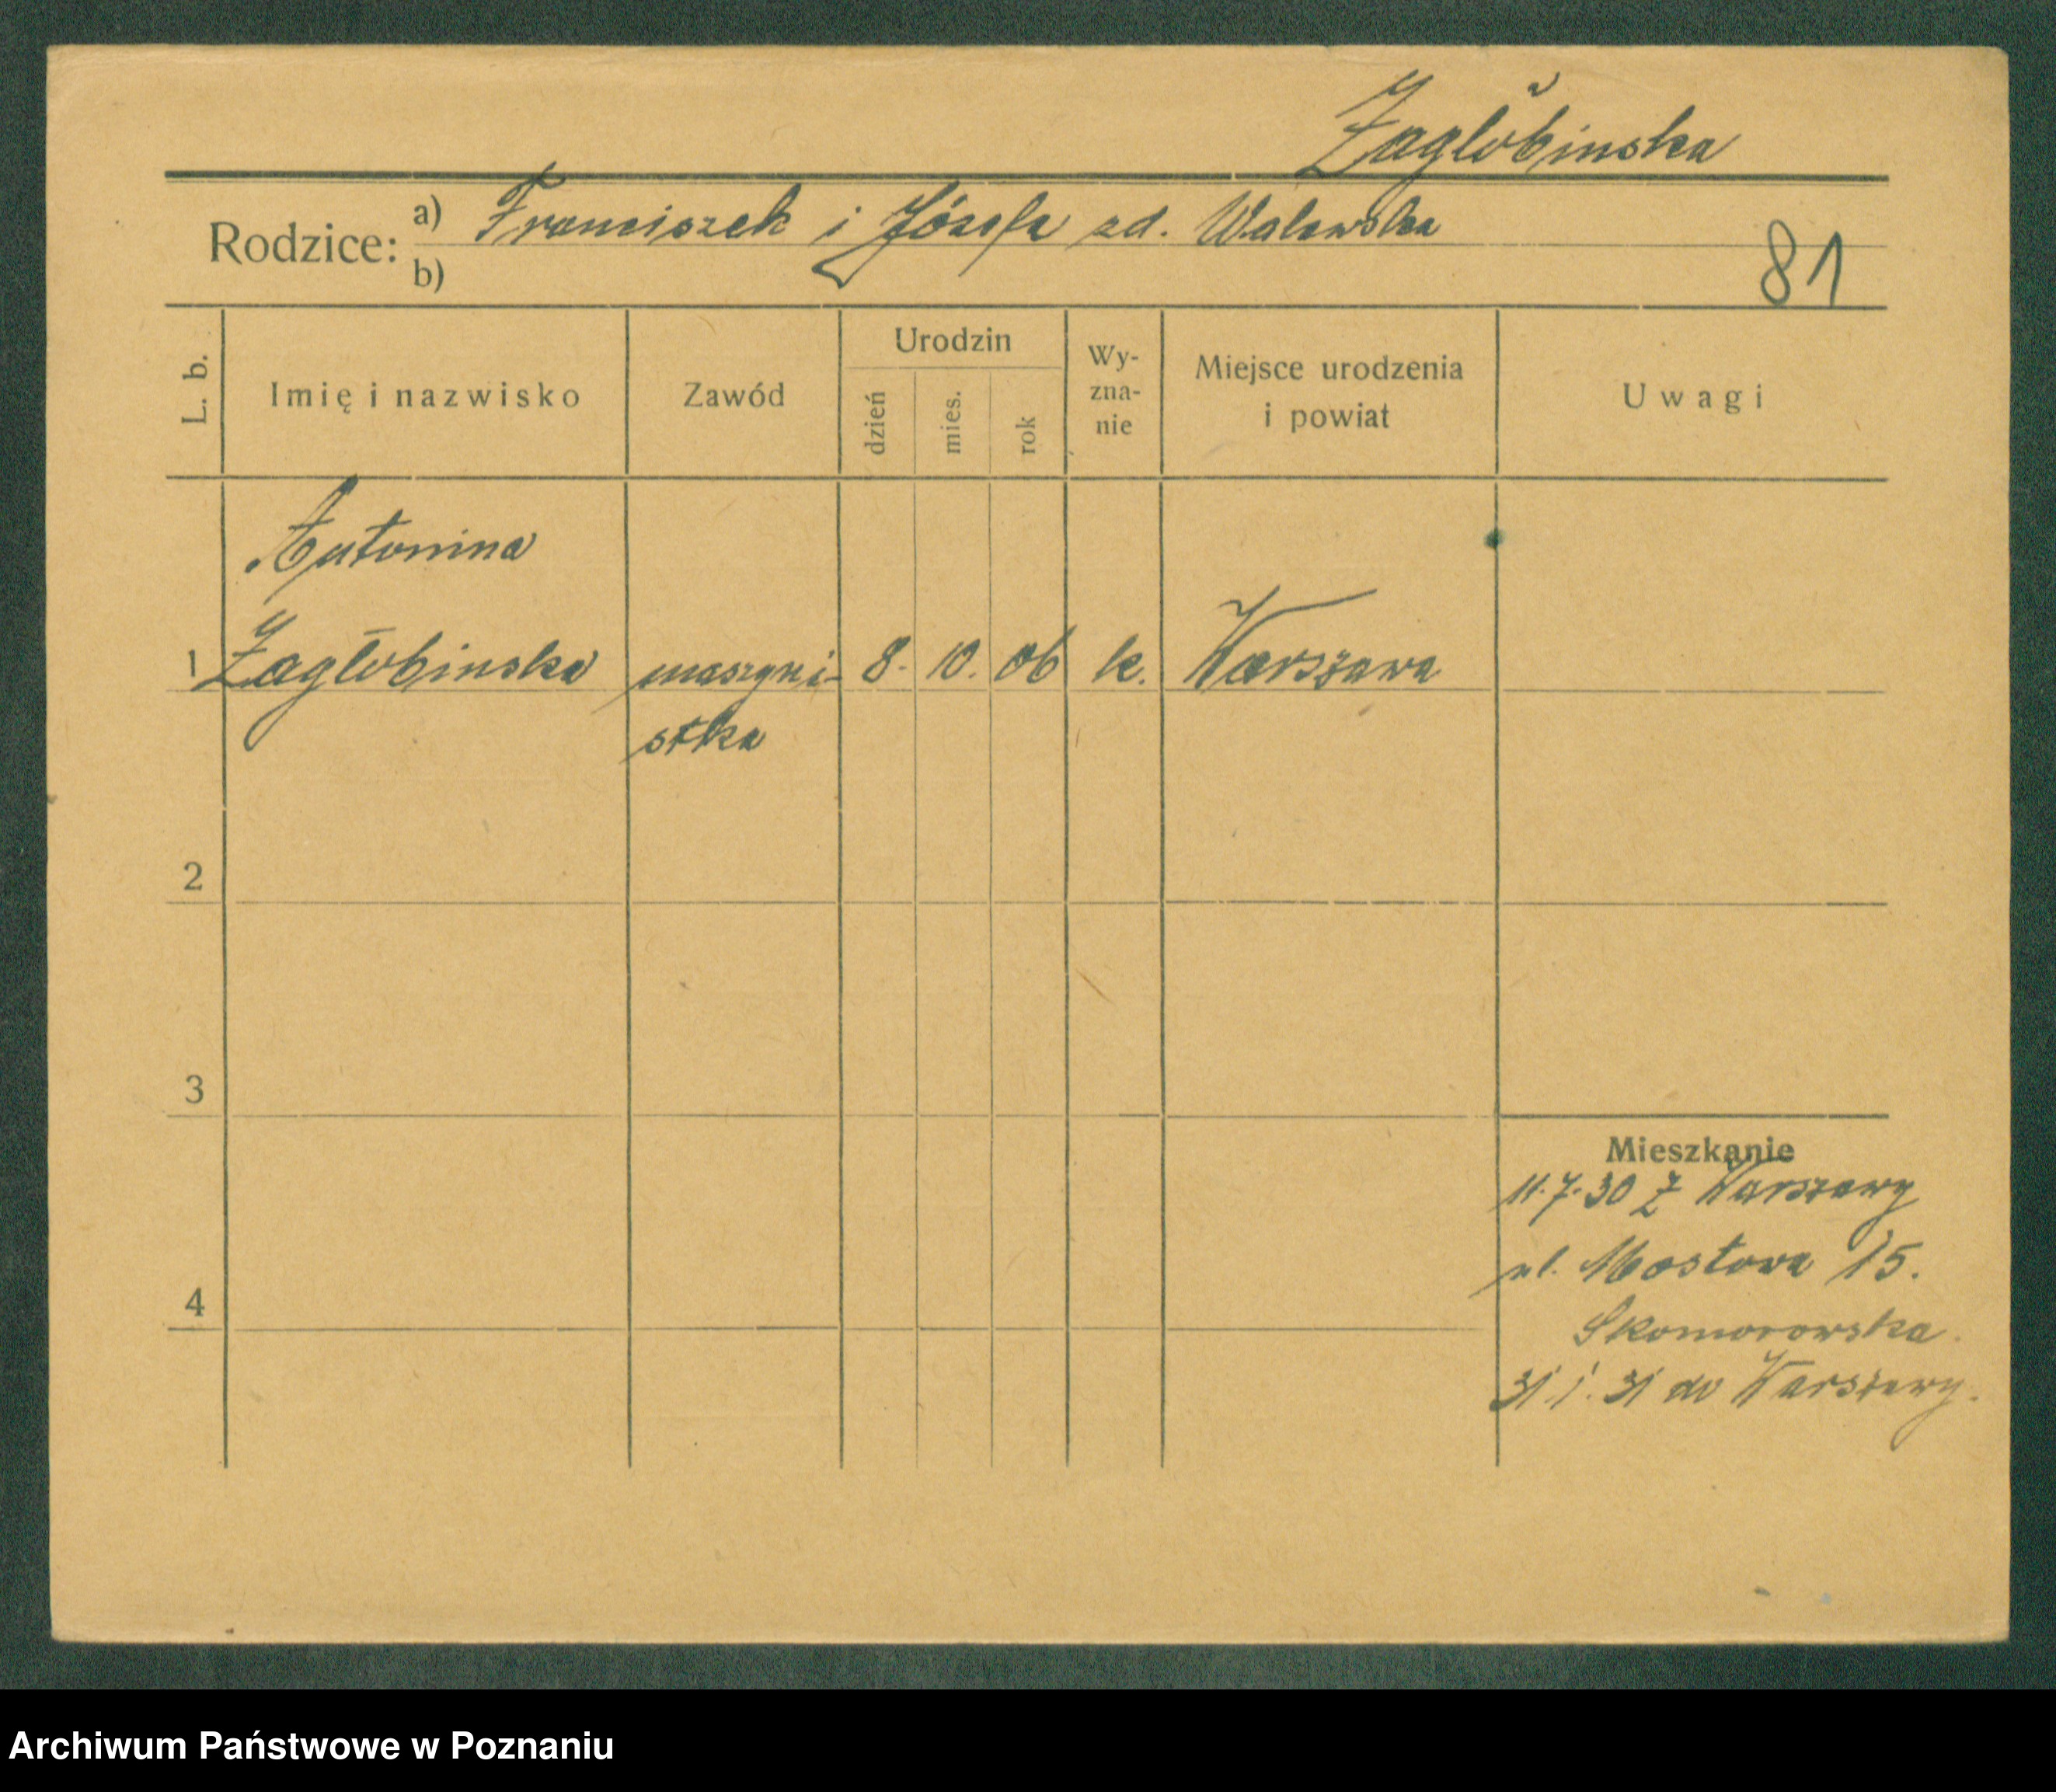 Zagłobinska
Rodzice: a) Franciszek i Józefa zd. Walewska
b)
81
L. b.
Imię i nazwisko
Zawód
Urodzin
dzień
mies.
rok
Wy-
zna-
nie
Miejsce urodzenia
i powiat
Uwagi
Antonina
1 Zagłobinska maszyni- 8. 10. 06 k. Warszawa
stka
2
3
4
Mieszkanie
11.7.30 z Warszawy
ul. Mostowa 15.
Skomorowska.
31.1.31 do Warszawy.
Archiwum Państwowe w Poznaniu